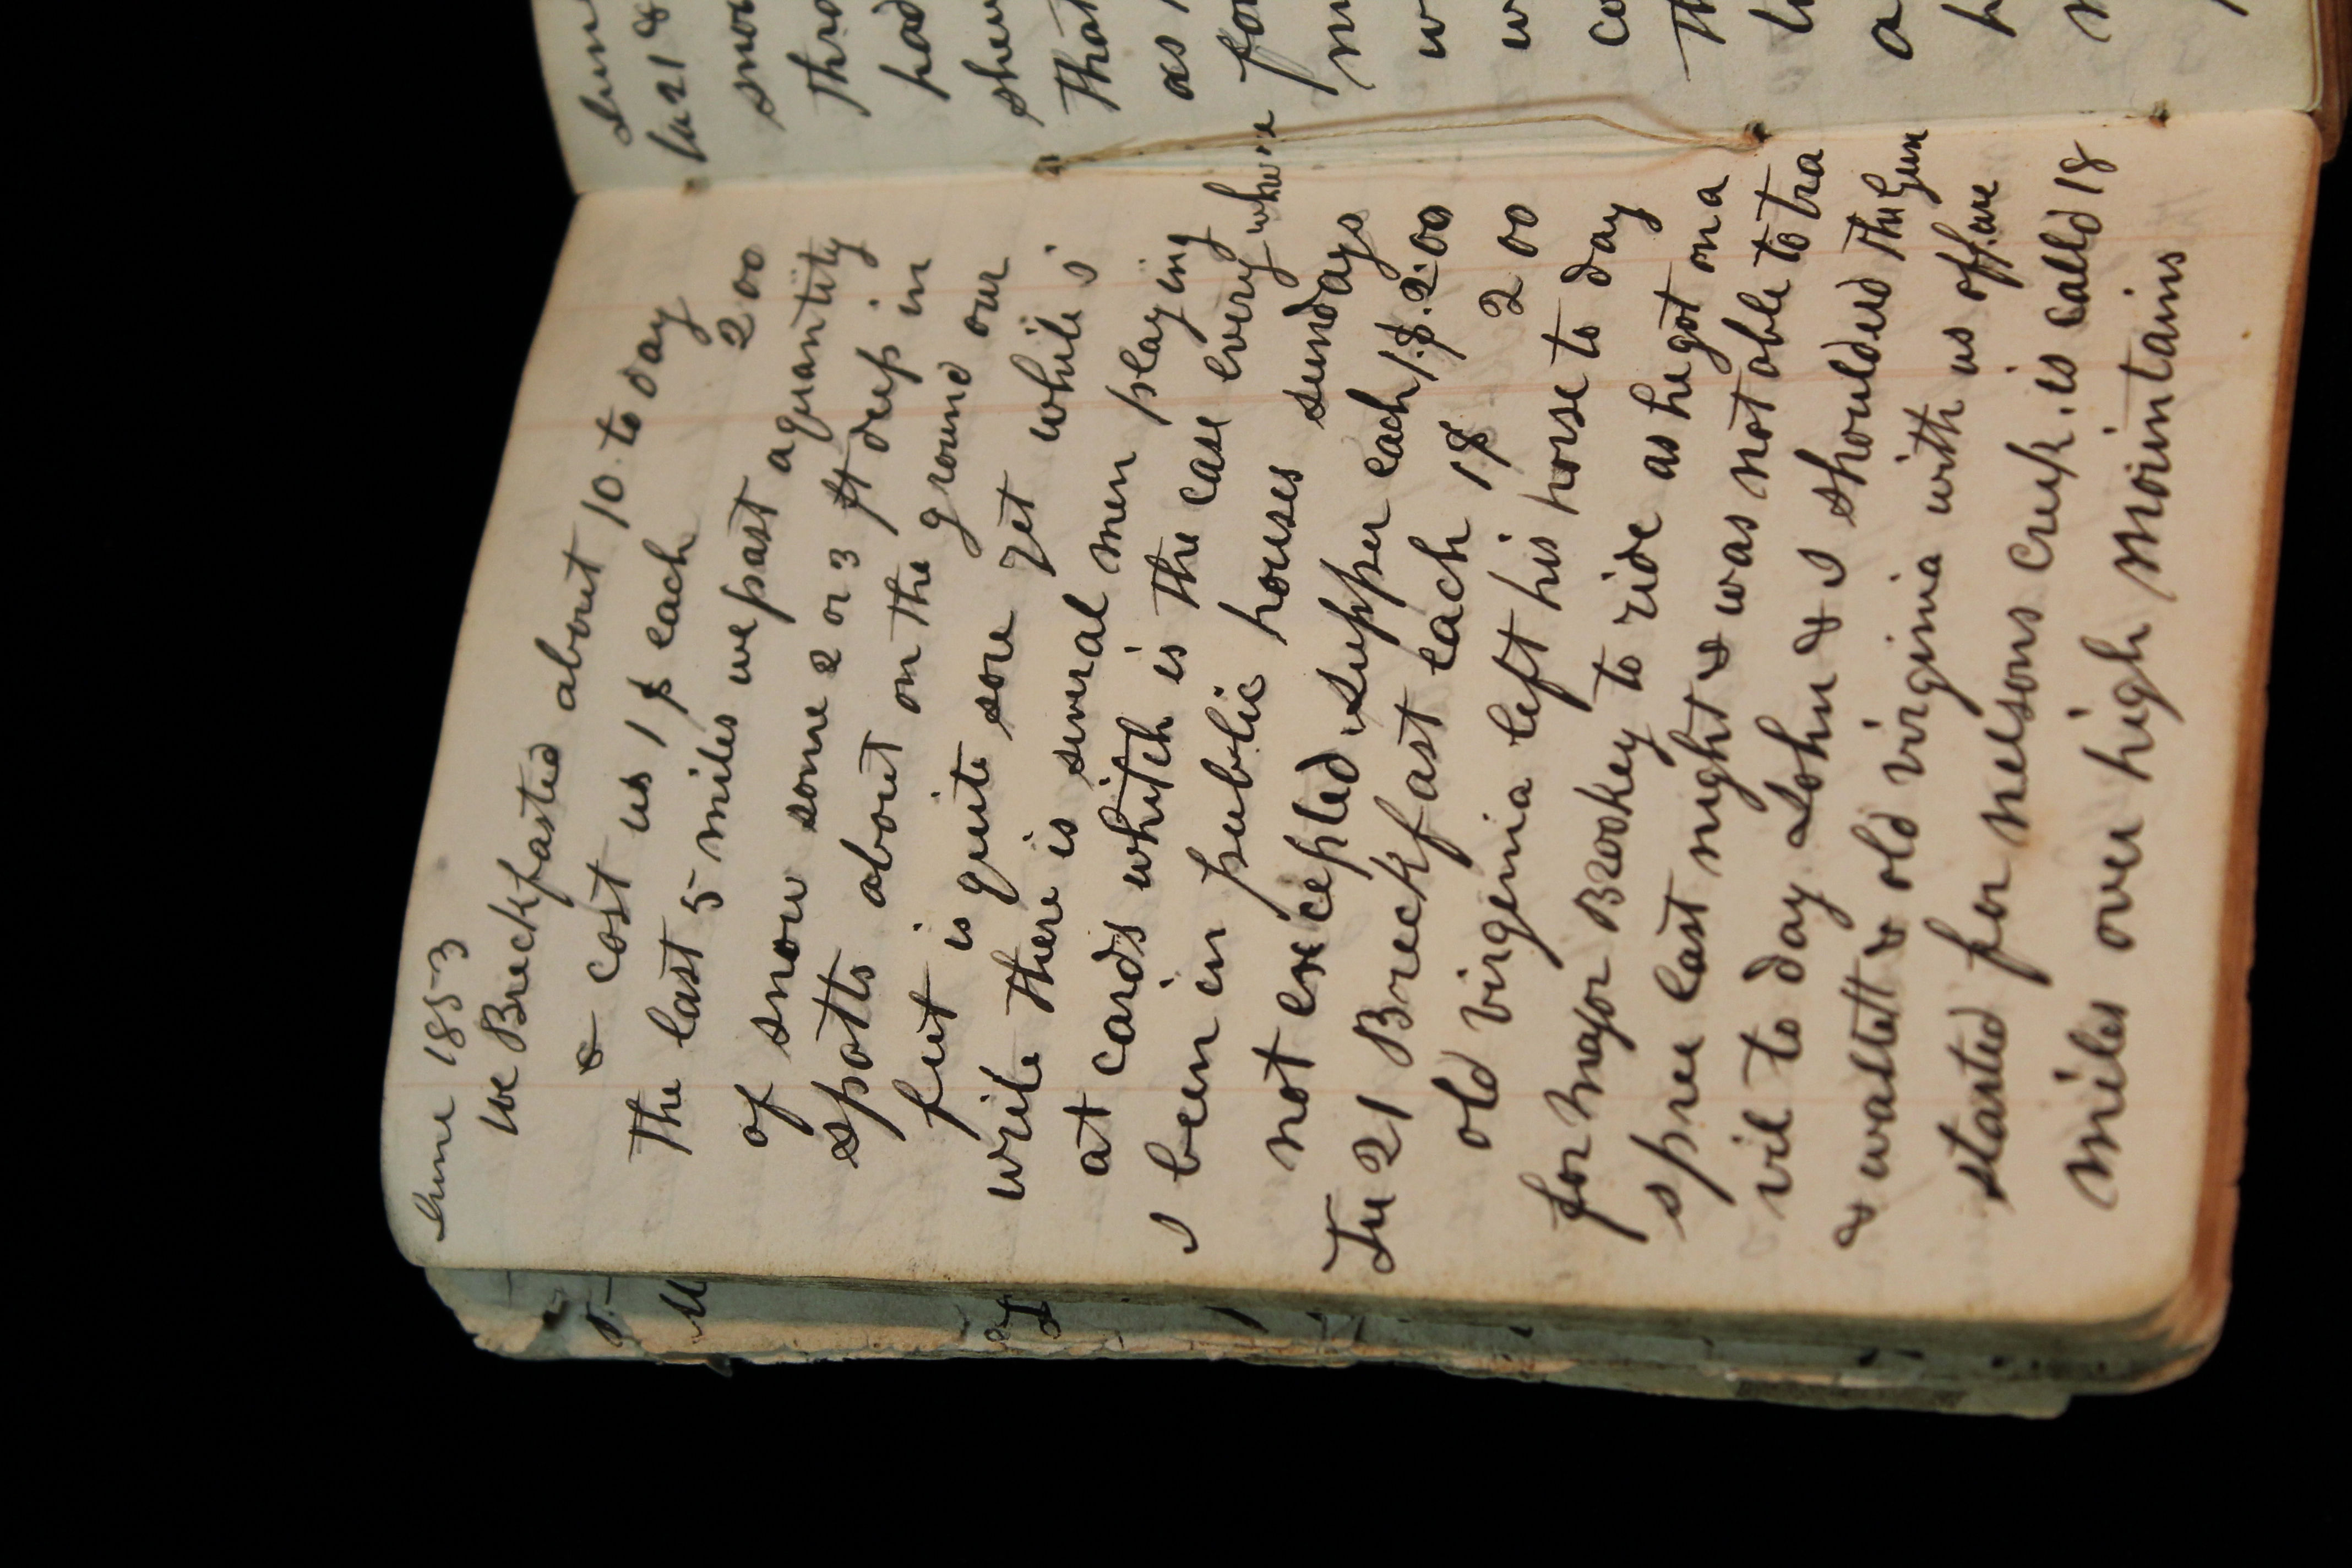 June 1853
we Breckfasted about 10 to day
& cost us 1 $ each 2 00
The last 5 miles we past a quantity
of snow some 2 or 3 ft deep in
spotts about on the ground our
feet is quite sore yet while i
write there is several men playing
at cards whitch is the case every where
I been in public houses sundays
not excepted. Supper each 1.$. 2.00
Tu 21 Breckfast each 1$ 2 00
old virginia left his horse to day
for major Brookey to ride as he got on a
spree last night & was not able to tra
vil to day John & I shoulderd the Gun
& wallett & old virginia with us off. we
started for nelsons Creek. is calld 18
miles over high mountains
June
tu 21 &
snow
thro
had
that
as
for